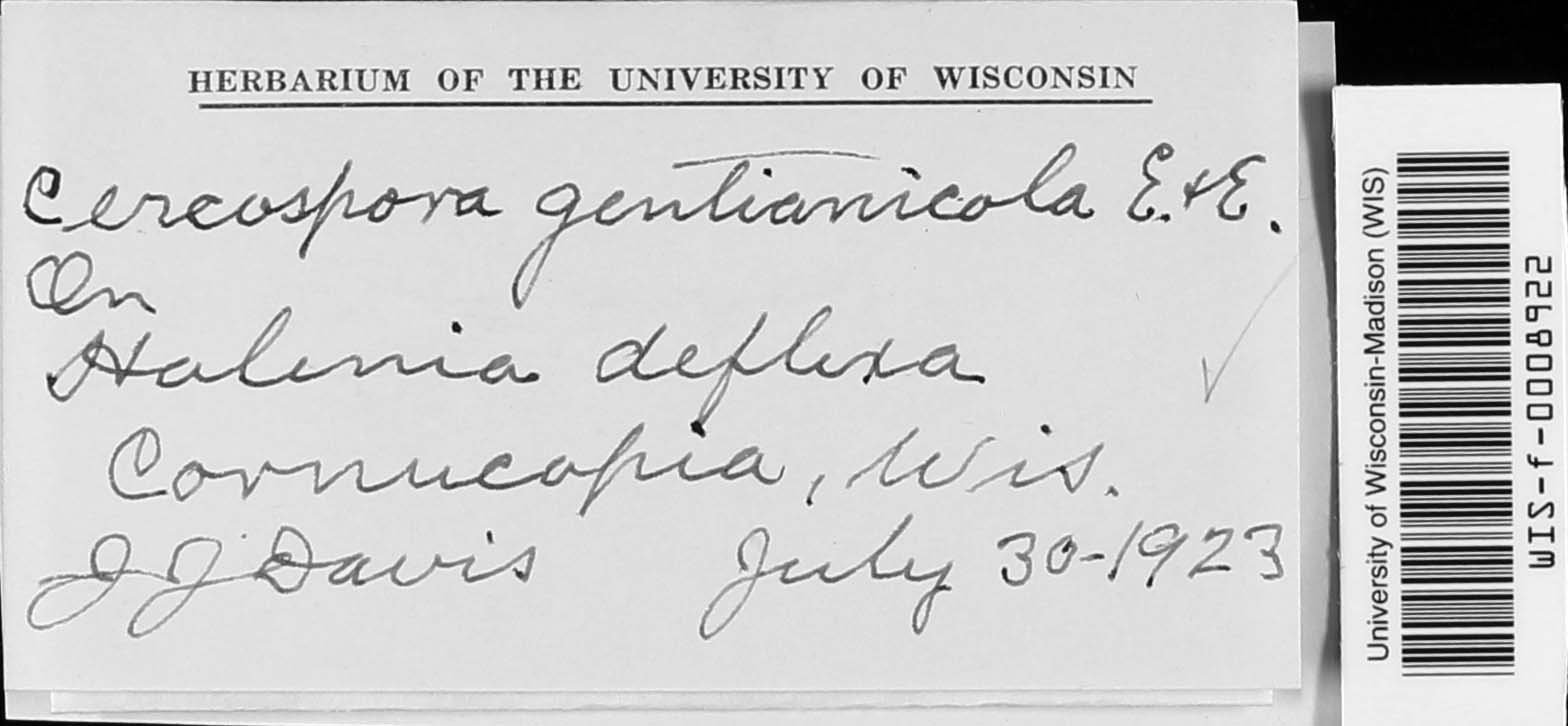 HERBARIUM OF THE UNIVERSITY OF WISCONSIN
Cercospora gentianicola E.+E.
On
Halenia deflexa
Cornucopia, Wis.
J J Davis July 30-1923
University of Wisconsin-Madison (WIS)
WIS-f-0008922